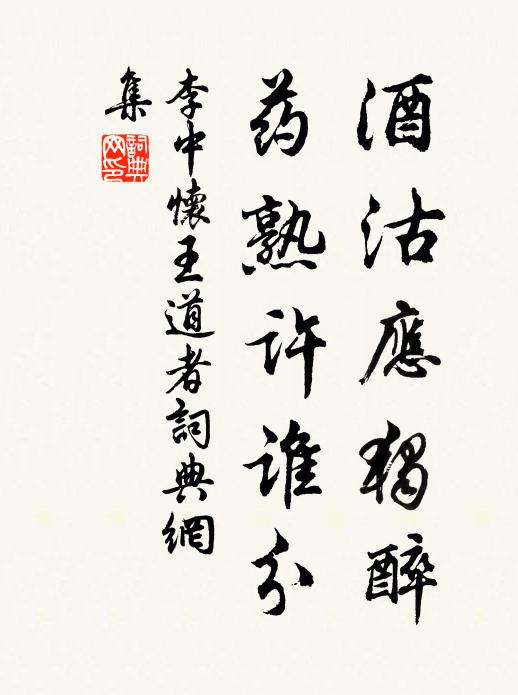 酒沽應獨醉
药熟許誰分
李中懷王道者詞典網
集
詞典網印